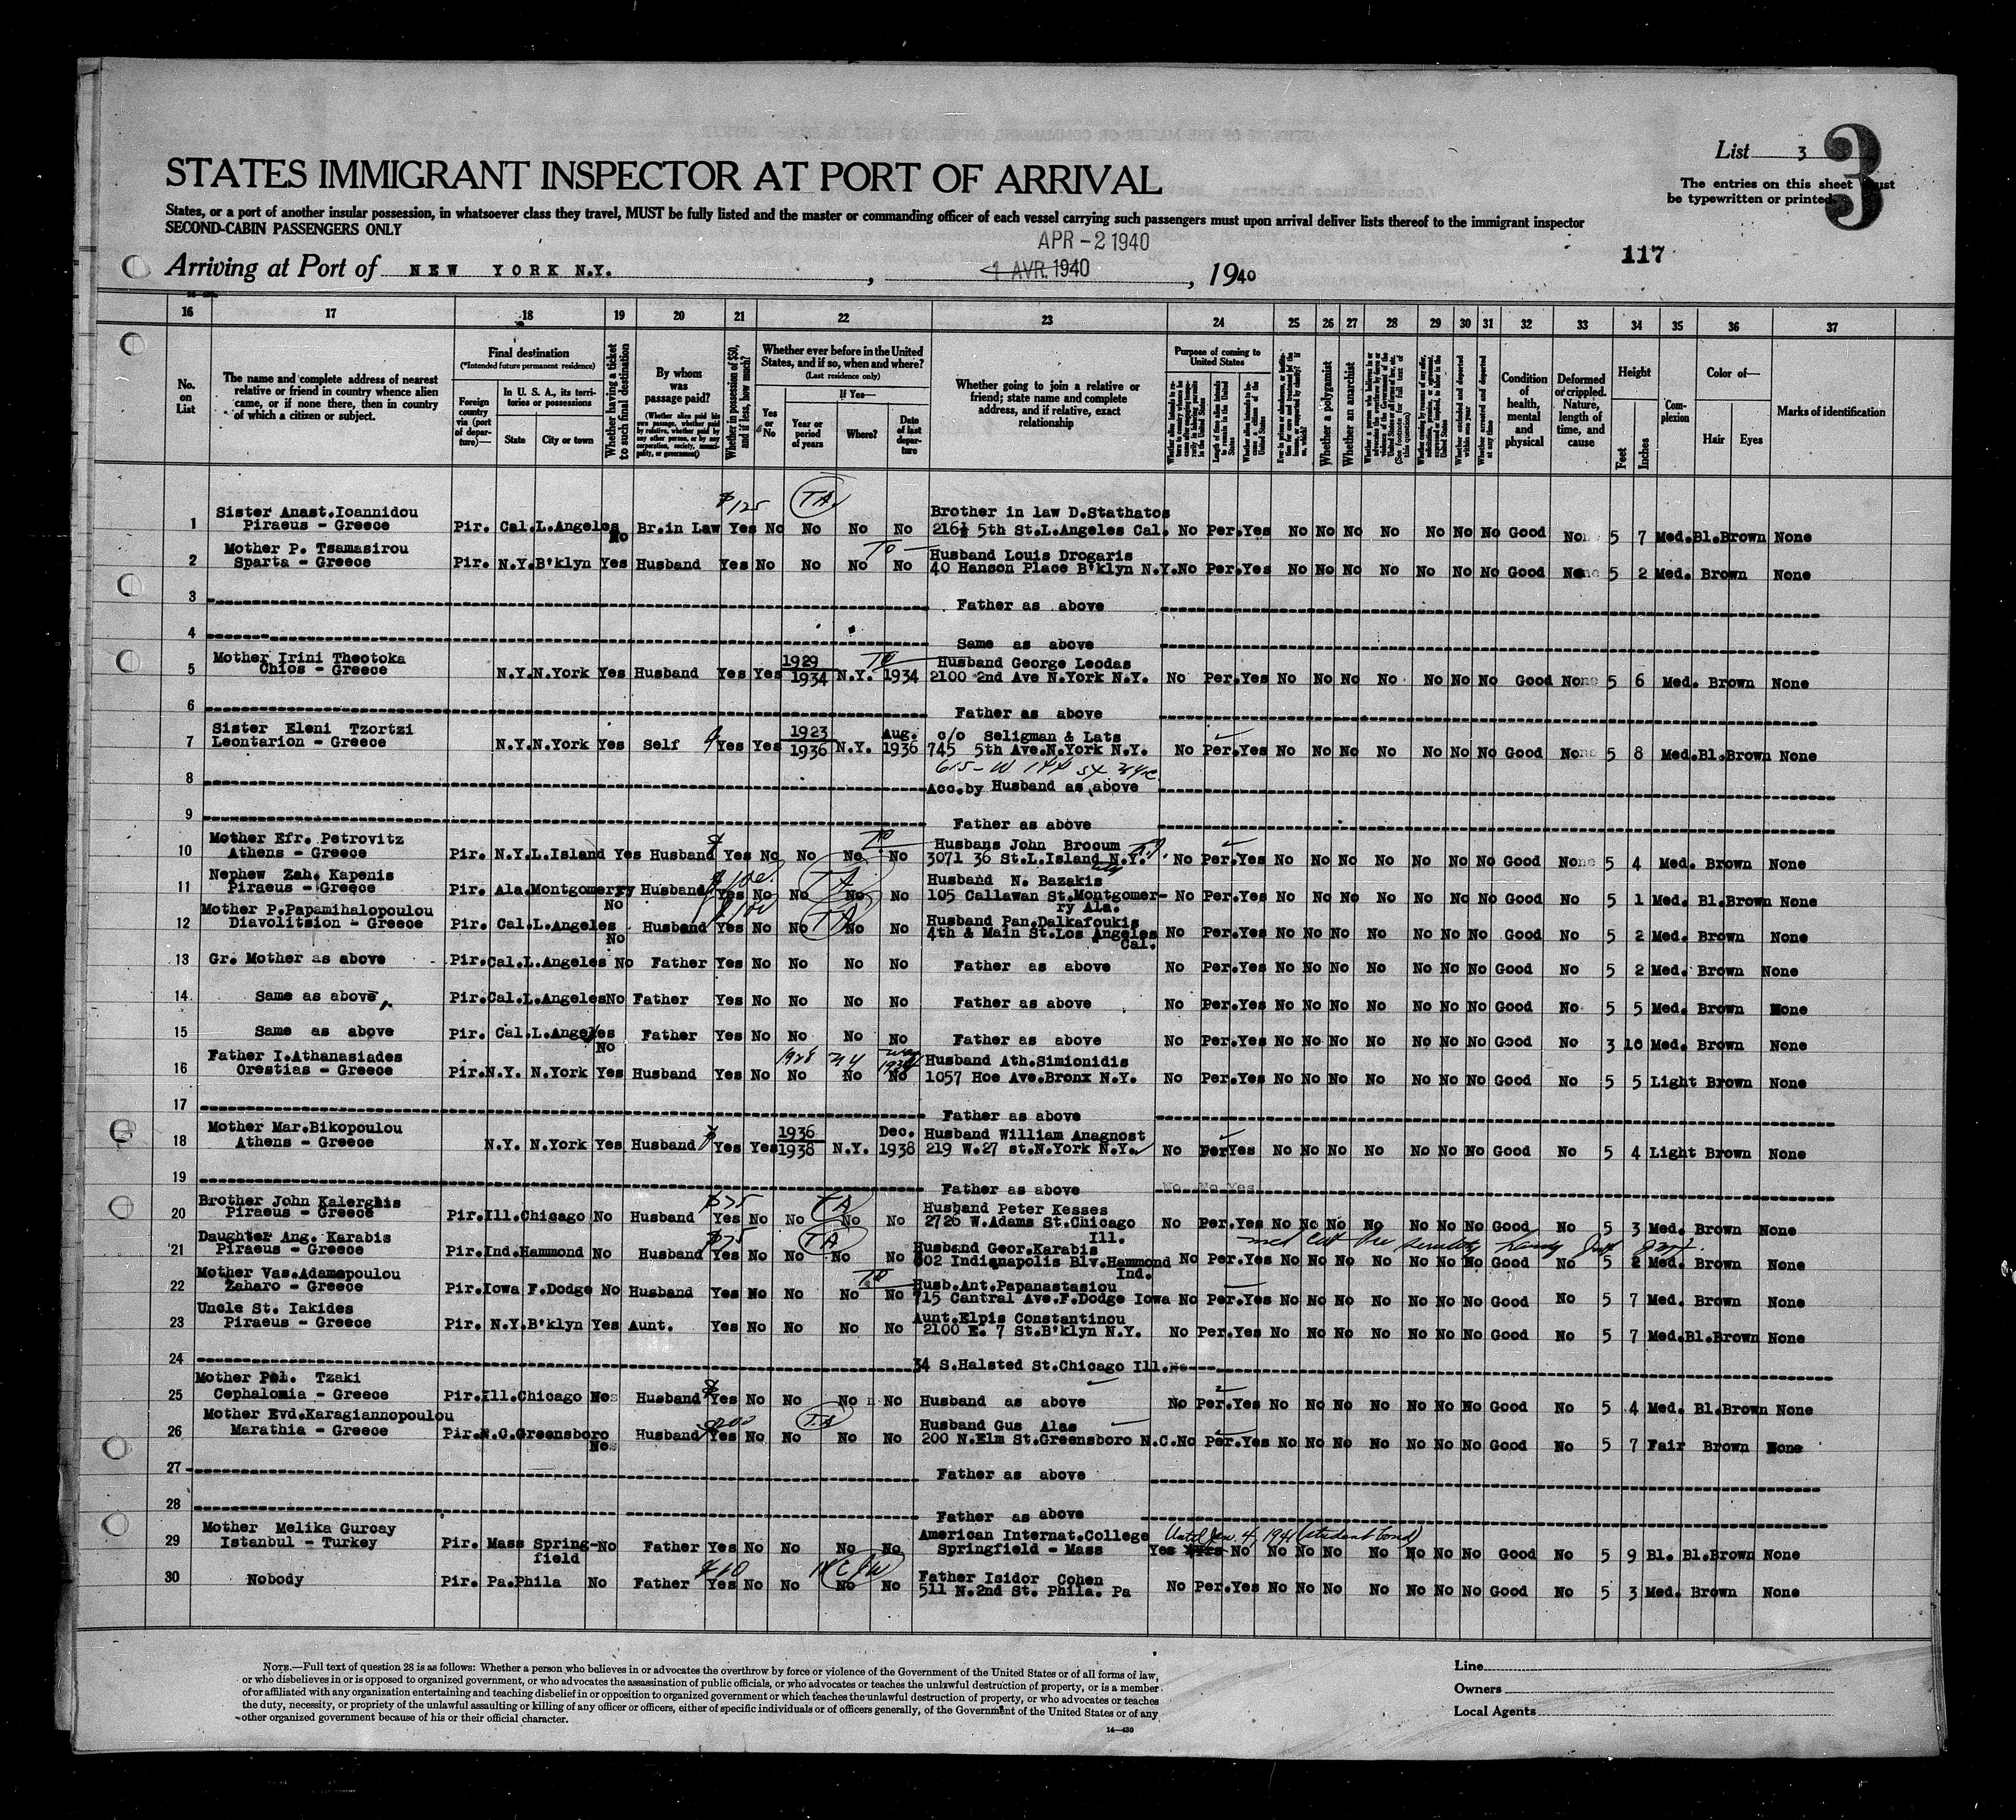 List 3
3
The entries on this sheet must
be typewritten or printed.
STATES IMMIGRANT INSPECTOR AT PORT OF ARRIVAL
States, or a port of another insular possession, in whatsoever class they travel, MUST be fully listed and the master or commanding officer of each vessel carrying such passengers must upon arrival deliver lists thereof to the immigrant inspector
SECOND-CABIN PASSENGERS ONLY
APR - 2 1940
117
Arriving at Port of NEW YORK N.Y. , 1 AVR. 1940 , 1940
16 17 18 19 20 21 22 23 24 25 26 27 28 29 30 31 32 33 34 35 36 37
No. on List
The name and complete address of nearest relative or friend in country whence alien came, or if none there, then in country of which a citizen or subject.
Final destination
(*Intended future permanent residence)
Foreign country via (port of departure)—
In U. S. A., its territories or possessions
State City or town
Whether having a ticket to such final destination
By whom was passage paid?
(Whether alien paid his own passage, whether paid by relative, whether paid by any other person, or by any corporation, society, municipality, or government)
Whether in possession of $50, and if less, how much?
Whether ever before in the United States, and if so, when and where?
(Last residence only)
Yes or No
If Yes—
Year or period of years Where? Date of last departure
Whether going to join a relative or friend; state name and complete address, and if relative, exact relationship
Purpose of coming to United States
Length of time alien intends to remain in the United States
Whether a polygamist
Whether an anarchist
Whether excluded and deported within one year
Whether arrested and deported at any time
Condition of health, mental and physical
Deformed or crippled. Nature, length of time, and cause
Height
Feet Inches
Complexion
Color of—
Hair Eyes
Marks of identification
$125 TA
Sister Anast.Ioannidou Brother in law D.Stathatos
1 Piraeus - Greece Pir. Cal.L.Angeles No Br.in Law Yes No No No No 216½ 5th St.L.Angeles Cal. No Per.Yes No No No No No No No Good None 5 7 Med.Bl.Brown None
Mother P. Tsamasirou Husband Louis Drogaris
2 Sparta - Greece Pir. N.Y.B'klyn Yes Husband Yes No No No No 40 Hanson Place B'klyn N.Y.No Per.Yes No No No No No No No Good None 5 2 Med. Brown None
3 Father as above
4 Same as above
Mother Irini Theotoka 1929 Husband George Leodas
5 Chios - Greece N.Y.N.York Yes Husband Yes Yes 1934 N.Y. 1934 2100 2nd Ave N.York N.Y. No Per.Yes No No No No No No No Good None 5 6 Med. Brown None
6 Father as above
Sister Eleni Tzortzi 1923 Aug. c/o Seligman & Lats
7 Leontarion - Greece N.Y.N.York Yes Self Yes Yes 1936 N.Y. 1936 745 5th Ave.N.York N.Y. No Per.Yes No No No No No No No Good None 5 8 Med.Bl.Brown None
615 - W 144 St
8 Acc.by Husband as above
9 Father as above
Mother Efr. Petrovitz Husbans John Brocum
10 Athens - Greece Pir. N.Y.L.Island Yes Husband Yes No No No No 3071 36 St.L.Island N.Y. No Per.Yes No No No No No No No Good None 5 4 Med. Brown None
Nephew Zah. Kapenis TA Husband N. Bazakis
11 Piraeus - Greece Pir. Ala.Montgomerry No Husband Yes No No No No 105 Callawan St.Montgomer- No Per.Yes No No No No No No No Good No 5 1 Med. Bl.Brown None
ry Ala.
Mother P.Papamihalopoulou $100 TA Husband Pan.Dalkafoukis
12 Diavolitsion - Greece Pir. Cal.L.Angeles No Husband Yes No No No No 4th & Main St.Los Angeles No Per.Yes No No No No No No No Good No 5 2 Med. Brown None
Cal.
13 Gr. Mother as above Pir.Cal.L.Angeles No Father Yes No No No No Father as above No Per.Yes No No No No No No No Good No 5 2 Med. Brown None
14 Same as above Pir.Cal.L.AngelesNo Father Yes No No No No Father as above No Per.Yes No No No No No No No Good No 5 5 Med. Brown None
15 Same as above Pir. Cal.L.Angeles No Father Yes No No No No Father as above No Per.Yes No No No No No No No Good No 3 10 Med. Brown None
Father I.Athanasiades 1928 NY Husband Ath.Simionidis
16 Orestias - Greece Pir.N.Y. N.York Yes Husband Yes No No No No 1057 Hoe Ave.Bronx N.Y. No Per.Yes No No No No No No No Good No 5 5 Light Brown None
17 Father as above
Mother Mar.Bikopoulou 1936 Dec. Husband William Anagnost
18 Athens - Greece N.Y. N.York Yes Husband Yes Yes 1938 N.Y. 1938 219 W.27 st.N.York N.Y. No PerYes No No No No No No No Good No 5 4 Light Brown None
19 Father as above No No Yes
Brother John Kalerghis $75 TA Husband Peter Kesses
20 Piraeus - Greece Pir.Ill.Chicago No Husband Yes No No No No 2726 W.Adams St.Chicago No Per.Yes No No No No No No No Good No 5 3 Med. Brown None
Ill.
Daughter Ang. Karabis $75 TA Husband Geor.Karabis
21 Piraeus - Greece Pir.Ind.Hammond No Husband Yes No No No No 802 Indianapolis Blv.Hammond No Per.Yes No No No No No No No Good No 5 2 Med. Brown None
Ind.
Mother Vas.Adamopoulou Husb.Ant.Papanastasiou
22 Zaharo - Greece Pir.Iowa F.Dodge No Husband Yes No No No No 715 Cantral Ave.F.Dodge Iowa No Per.Yes No No No No No No No Good No 5 7 Med. Brown None
Uncle St. Iakides Aunt.Elpis Constantinou
23 Piraeus - Greece Pir. N.Y.B'klyn Yes Aunt. Yes No No No No 2100 E. 7 St.B'klyn N.Y. No Per.Yes No No No No No No No Good No 5 7 Med.Bl.Brown None
24 34 S.Halsted St.Chicago Ill.
Mother Pol. Tzaki
25 Cephalomia - Greece Pir.Ill.Chicago Husband Yes No No No No Husband as above No Per.Yes No No No No No No No Good No 5 4 Med. Bl.Brown None
Mother Evd.Karagiannopoulou $200 TA Husband Gus Alas
26 Marathia - Greece Pir.N.C.Greensboro Husband Yes No No No No 200 N.Elm St.Greensboro N.C.No Per.Yes No No No No No No No Good No 5 7 Fair Brown None
27 Father as above
28 Father as above
Mother Melika Gurcay American Internat.College Until Jan. 4, 1941 (student bond)
29 Istanbul - Turkey Pir. Mass Spring-No Father Yes No No No No Springfield - Mass Yes No No No No No No No No Good No 5 9 Bl. Bl.Brown None
field
30 Nobody Pir. Pa.Phila No Father Yes No No No No Father Isidor Cohen No Per.Yes No No No No No No No Good No 5 3 Med. Brown None
511 N.2nd St. Phila. Pa
NOTE.—Full text of question 28 is as follows: Whether a person who believes in or advocates the overthrow by force or violence of the Government of the United States or of all forms of law,
or who disbelieves in or is opposed to organized government, or who advocates the assassination of public officials, or who advocates or teaches the unlawful destruction of property, or is a member
of or affiliated with any organization entertaining and teaching disbelief in or opposition to organized government or which teaches the unlawful destruction of property, or who advocates or teaches
the duty, necessity, or propriety of the unlawful assaulting or killing of any officer or officers, either of specific individuals or of officers generally, of the Government of the United States or of any
other organized government because of his or their official character.
14—430
Line
Owners
Local Agents